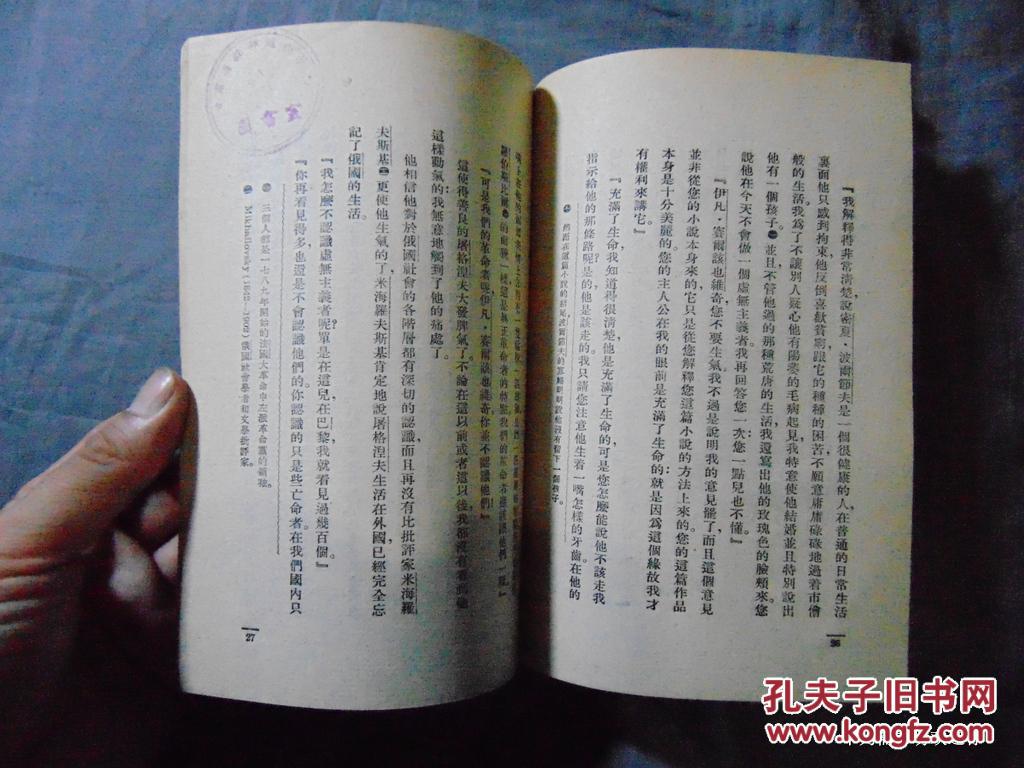 『我解釋得非常清楚說密夏·波爾節夫是一個很健康的人在普通的日常生活
裏面他只感到拘束他反倒喜歡貧窮跟它的種種的困苦不願意庸庸碌碌地過着市儈
般的生活我爲了不讓別人疑心他有陽萎的毛病起見我特意使他結婚並且特別說出
他有一個孩子㊀並且不管他過的那種荒唐的生活我還寫出他的玫瑰色的臉頰來您
說他在今天不會做一個虛無主義者我再回答您一次您一點兒也不懂。』
『伊凡·賽爾該也維奇您不要生氣我不過是說明我的意見罷了而且這個意見
並非從您的小說本身來的它只是從您解釋您這篇小說的方法上來的您的這篇作品
本身是十分美麗的您的主人公在我的眼前是充滿了生命的就是因爲這個緣故我才
有權利來講它』
『充滿了生命我知道得很清楚他是充滿了生命的可是您怎麼能說他不該走我
指示給他的那條路呢是的他是該走的我只請您注意他生着一嘴怎樣的牙齒在他的
㊀ 然而在這篇小說的結尾波爾節夫的寡婦明明說他沒有留下一個孩子。
26
『可是我們的革命者呢伊凡·賽爾該也維奇你並不認識他們』
這使得善良的屠格涅夫大發脾氣了不論在這以前或者這以後我都沒有看見他
這樣動氣的:我無意地觸到了他的痛處了。
他相信他對於俄國社會的各階層都有深切的認識而且再沒有比批評家米海羅
夫斯基㊁更使他生氣的了米海羅夫斯基肯定地說屠格涅夫生活在外國已經完全忘
記了俄國的生活。
『我怎麼不認識虛無主義者呢?單是在這兒在巴黎我就看見過幾百個。』
『你再看見得多,也還是不會認識他們的。你認識的只是些亡命者。在我們國內只
㊀ 三個人都是一七八九年開始的法國大革命中左派革命黨的領袖。
㊁ Mikhailovsky (1842-1909) 俄國社會學者和文學批評家。
27
孔夫子旧书网
www.kongfz.com